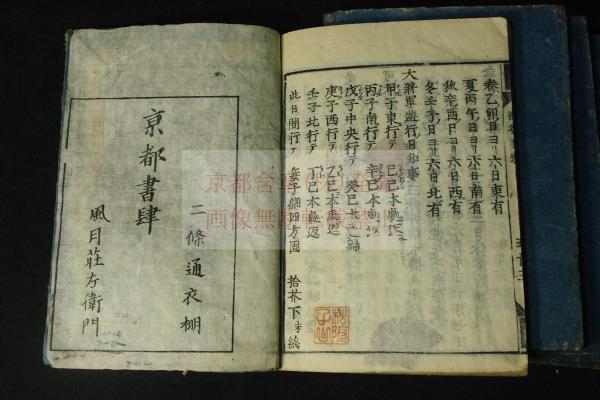 春乙卯日ヨリ六日東有
夏丙午日ヨリ六日南有
秋辛酉日ヨリ六日西有
冬壬子日ヨリ六日北有
大將軍遊行日知事
甲子東行テ 己巳本處返
丙子南行テ 辛巳本處返
戊子中央行テ 癸巳
庚子西行テ 乙巳本處返
壬子北行テ 丁巳本處返
此日間行テ 四方
拾芥下末終
京都書肆
二條通衣棚
風月荘左衛門
京都合
画像無断転載禁